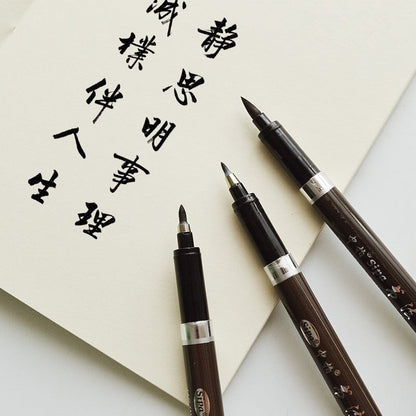 静思明事理
樸伴人生